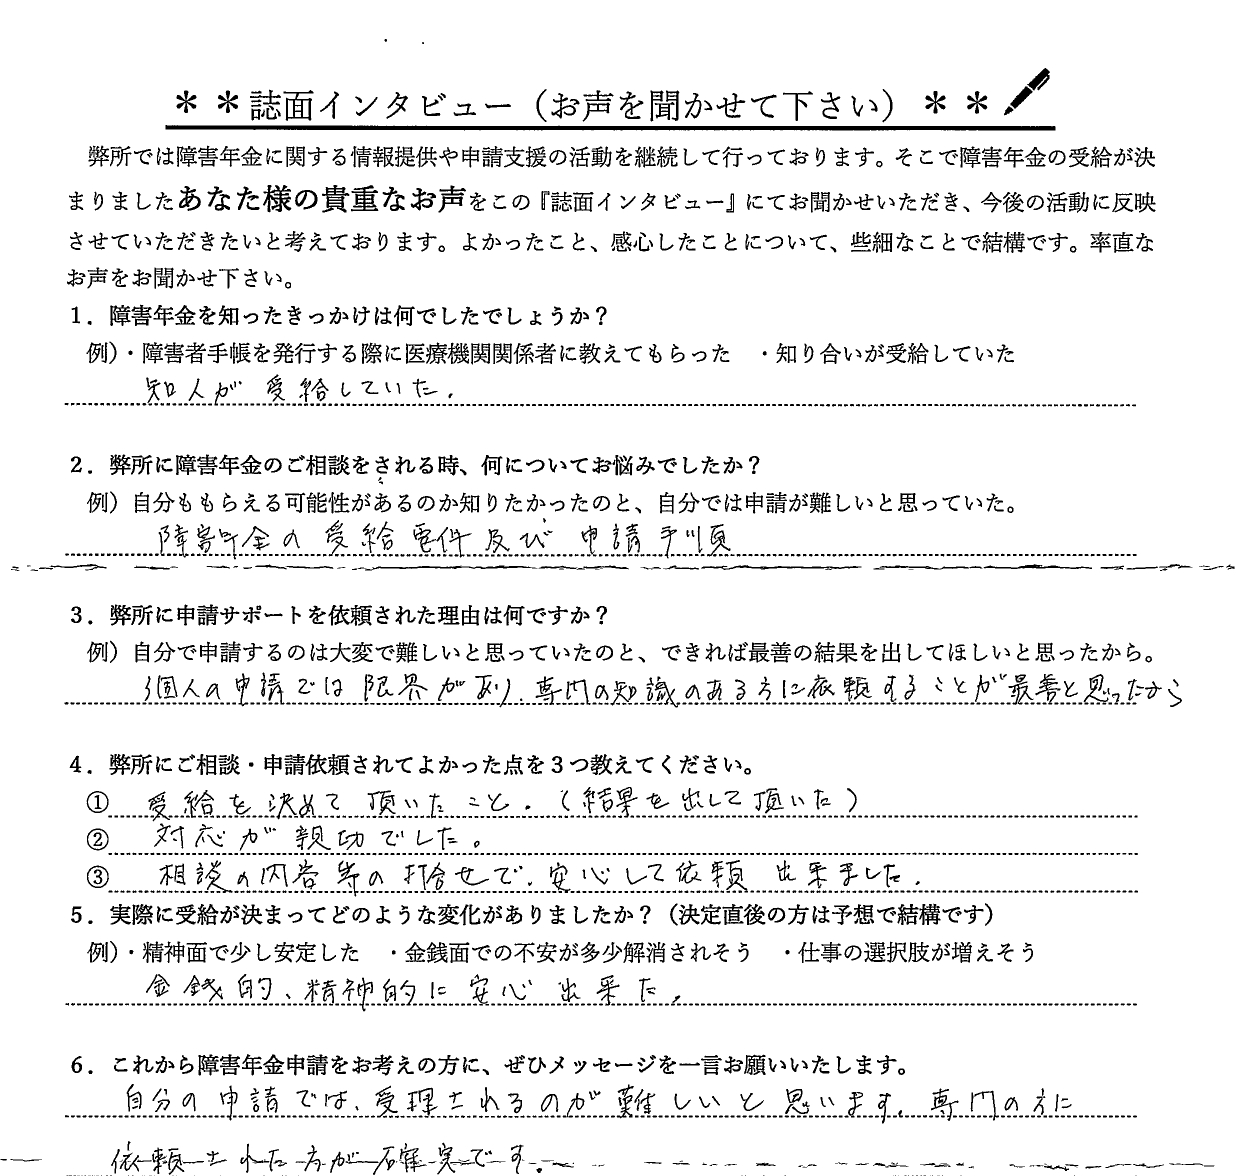 ＊＊誌面インタビュー（お声を聞かせて下さい）＊＊
弊所では障害年金に関する情報提供や申請支援の活動を継続して行っております。そこで障害年金の受給が決
まりましたあなた様の貴重なお声をこの『誌面インタビュー』にてお聞かせいただき、今後の活動に反映
させていただきたいと考えております。よかったこと、感心したことについて、些細なことで結構です。率直な
お声をお聞かせ下さい。
１．障害年金を知ったきっかけは何でしたでしょうか？
例）・障害者手帳を発行する際に医療機関関係者に教えてもらった　・知り合いが受給していた
知人が受給していた.
２．弊所に障害年金のご相談をされる時、何についてお悩みでしたか？
例）自分ももらえる可能性があるのか知りたかったのと、自分では申請が難しいと思っていた。
障害年金の受給要件及び申請手順
３．弊所に申請サポートを依頼された理由は何ですか？
例）自分で申請するのは大変で難しいと思っていたのと、できれば最善の結果を出してほしいと思ったから。
個人の申請では限界があり、専門の知識のある方に依頼することが最善と思ったから
４．弊所にご相談・申請依頼されてよかった点を３つ教えてください。
①受給を決めて頂いたこと.（結果を出して頂いた）
②対応が親切でした。
③相談の内容等の打合せで、安心して依頼出来ました.
５．実際に受給が決まってどのような変化がありましたか？（決定直後の方は予想で結構です）
例）・精神面で少し安定した　・金銭面での不安が多少解消されそう　・仕事の選択肢が増えそう
金銭的、精神的に安心出来た.
６．これから障害年金申請をお考えの方に、ぜひメッセージを一言お願いいたします。
自分の申請では、受理されるのが難しいと思います. 専門の方に
依頼された方が確実です.